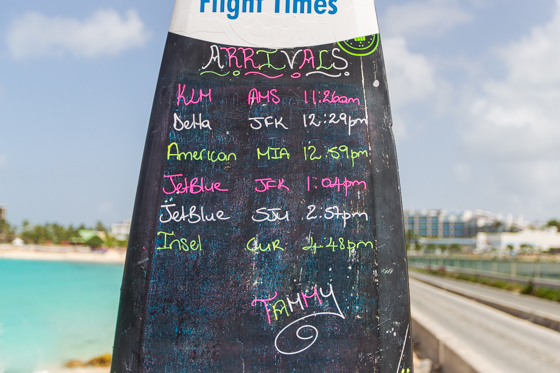 Flight Times
ARRIVALS
KLM AMS 11:26am
Delta JFK 12:29pm
American MIA 12:59pm
JetBlue JFK 1:04pm
JetBlue SJU 2:57pm
Insel CUR 4:48pm
TAMMY